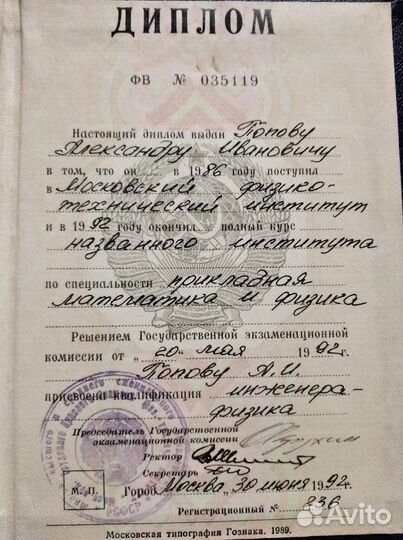 ДИПЛОМ
ФВ № 035119
Настоящий диплом выдан Попову
Александру Ивановичу
в том, что он в 1986 году поступил
в Московский физико-
технический институт
и в 1992 году окончил полный курс
названного института
по специальности прикладная
математика и физика
Решением Государственной экзаменационной
комиссии от „20“ мая 1992 г.
Попову А.И.
присвоена квалификация инженера-
физика
Председатель Государственной
экзаменационной комиссии
Ректор
Секретарь
М. П. Город Москва, 30 июня 1992 г.
Регистрационный № 236
Московская типография Гознака. 1989.
РСФСР
Avito